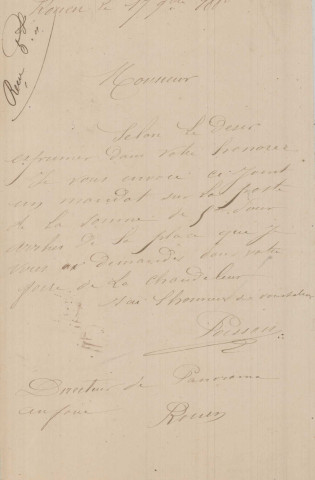 Rouen le 17 9bre
Monsieur
Selon le desir
exprimer dans votre honoree
Je vous envoie ci Joint
un mandat sur la poste
de la somme de pour
arrhes de la place que Je
vous ai demandée dans votre
foire de la chandeleur
J'ai l'honneur de
Directeur de Panorama
en foire Rouen